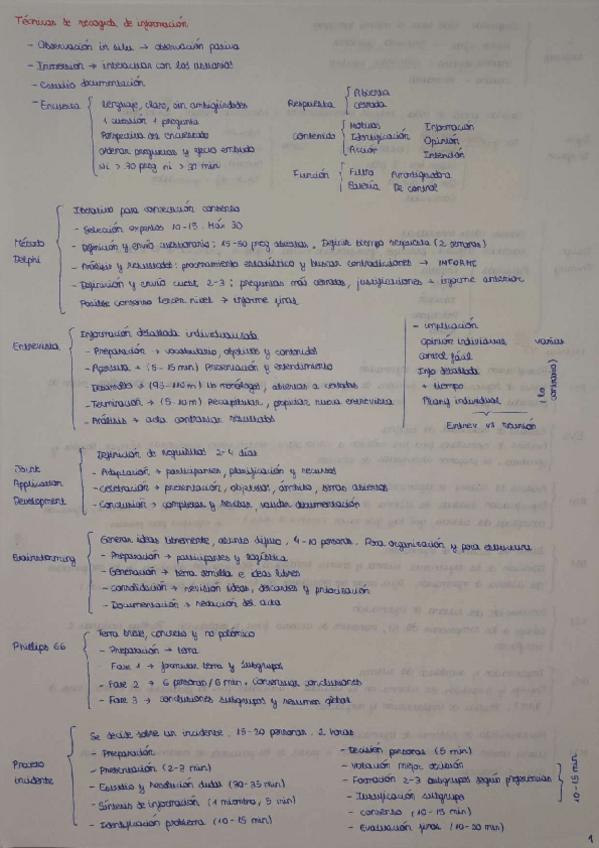 Técnicas de recogida de información
- Observación in situ → observación pasiva
- Inmersión → interactuar con los usuarios
- Estudio documentación
- Encuesta
Lenguaje, claro, sin ambigüedades
1 cuestión 1 pregunta
Perspectiva del encuestado
Ordenar preguntas y
ni > 30 preg ni > 30 min
Respuesta
Abierta
cerrada
Contenido
Motivos
Identificación
Acción
Información
Opinión
Intención
Función
Filtro
Batería
Amortiguadora
De control
Método Delphi
Iterativo para consecución consenso
- Selección expertos 10-15. Máx 30
- Definición y envío cuestionario: 15-50 preg abiertas. tiempo respuesta (2 semanas)
- Análisis y resultados: procesamiento estadístico y buscar contradicciones → INFORME
- Definición y envío cuest 2-3: preguntas más cerradas, justificaciones + informe anterior
Posible consenso tercer nivel → informe final
Entrevista
Información detallada individualizada
- Preparación → vocabulario, objetivos y contenidos
- Apertura → (5-15 min) Presentación y
- Desarrollo → No monólogos, abiertas a cerradas
- Terminación → (5-10 m) Recapitular, nueva entrevista
- Análisis → acta contrastar resultados
- implicación
opinión individual
varias
control fácil
Info detallada
+ tiempo
individual
Entrev vs reunión
Joint Application Development
Definición de requisitos 2-4 días
- Adaptación → participantes, planificación y recursos
- Celebración → presentación, objetivos, ámbito, temas abiertos
- Conclusión → completar y revisar, validar documentación
Brainstorming
Generar ideas libremente, asunto difuso. 4-10 personas. Poca organización y poca estructura
- Preparación → participantes y logística
- Generación → tema semilla e ideas libres
- Consolidación → revisión ideas, descartes y priorización
- Documentación → redacción del acta
Phillips 66
Tema breve, concreto y no polémico
- Preparación → tema
Fase 1 → formular tema y subgrupos
- Fase 2 → 6 personas/6 min. Consensuar conclusiones
- Fase 3 → conclusiones subgrupos y resumen global
Proceso incidente
Se decide sobre un incidente. 15-20 personas. 2 horas
- Preparación
- Presentación (2-3 min)
- Estudio y resolución dudas (30-35 min)
- Síntesis de información (1 miembro, 5 min)
- Identificación problema (10-15 min)
- Decisión personas (5 min)
- Votación mejor decisión
- Formación 2-3 subgrupos según preferencias
- Justificación subgrupo
- consenso (10-15 min)
- Evaluación final (10-20 min)
10-15 min
1